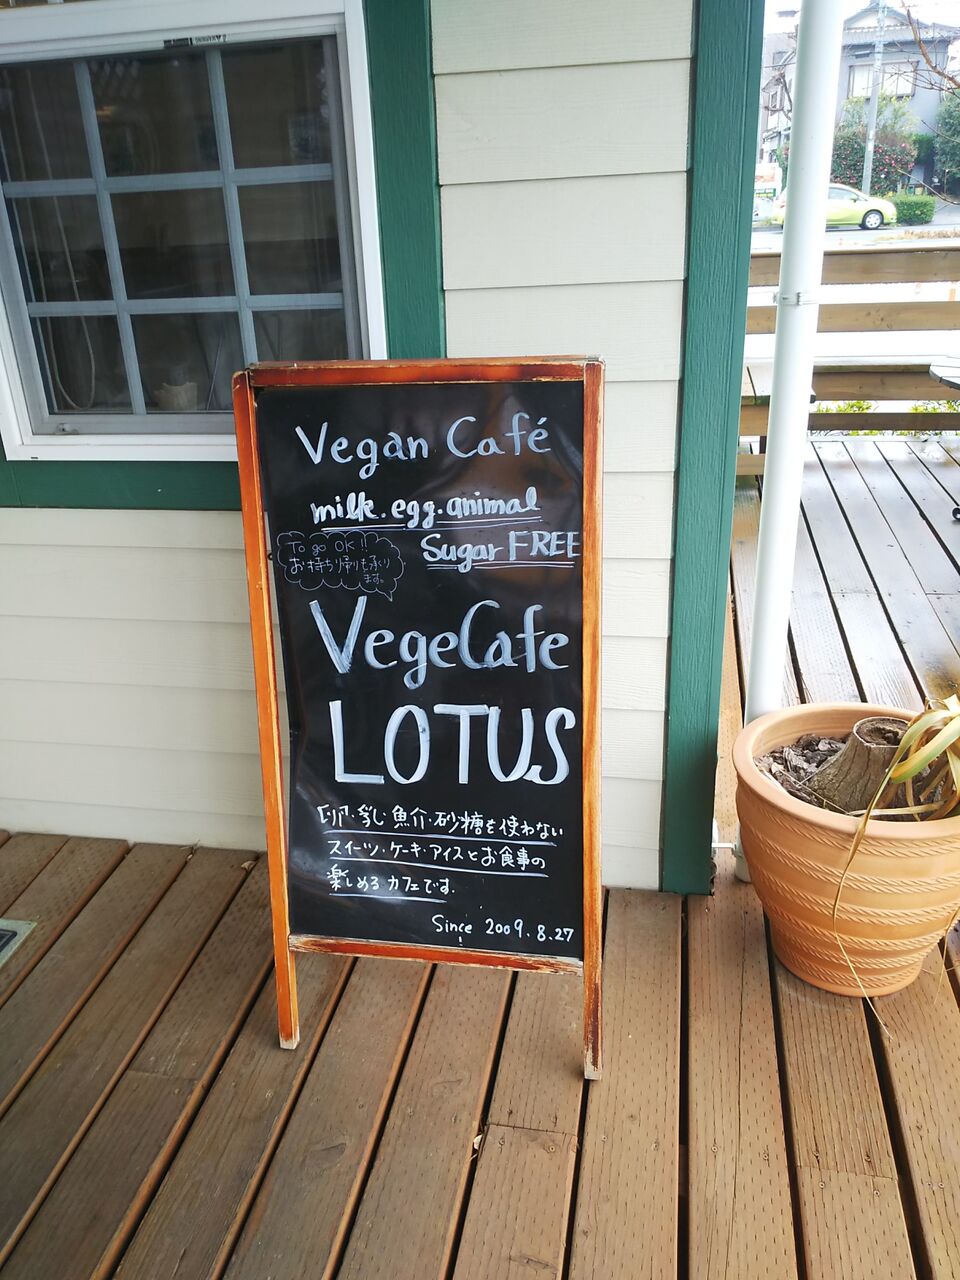 Vegan Café
milk.egg.animal
Sugar FREE
To go OK!!
お持ち帰りも承り
ます。
VegeCafe
LOTUS
卵・乳・魚介・砂糖を使わない
スイーツ・ケーキ・アイスとお食事の
楽しめるカフェです.
Since 2009.8.27